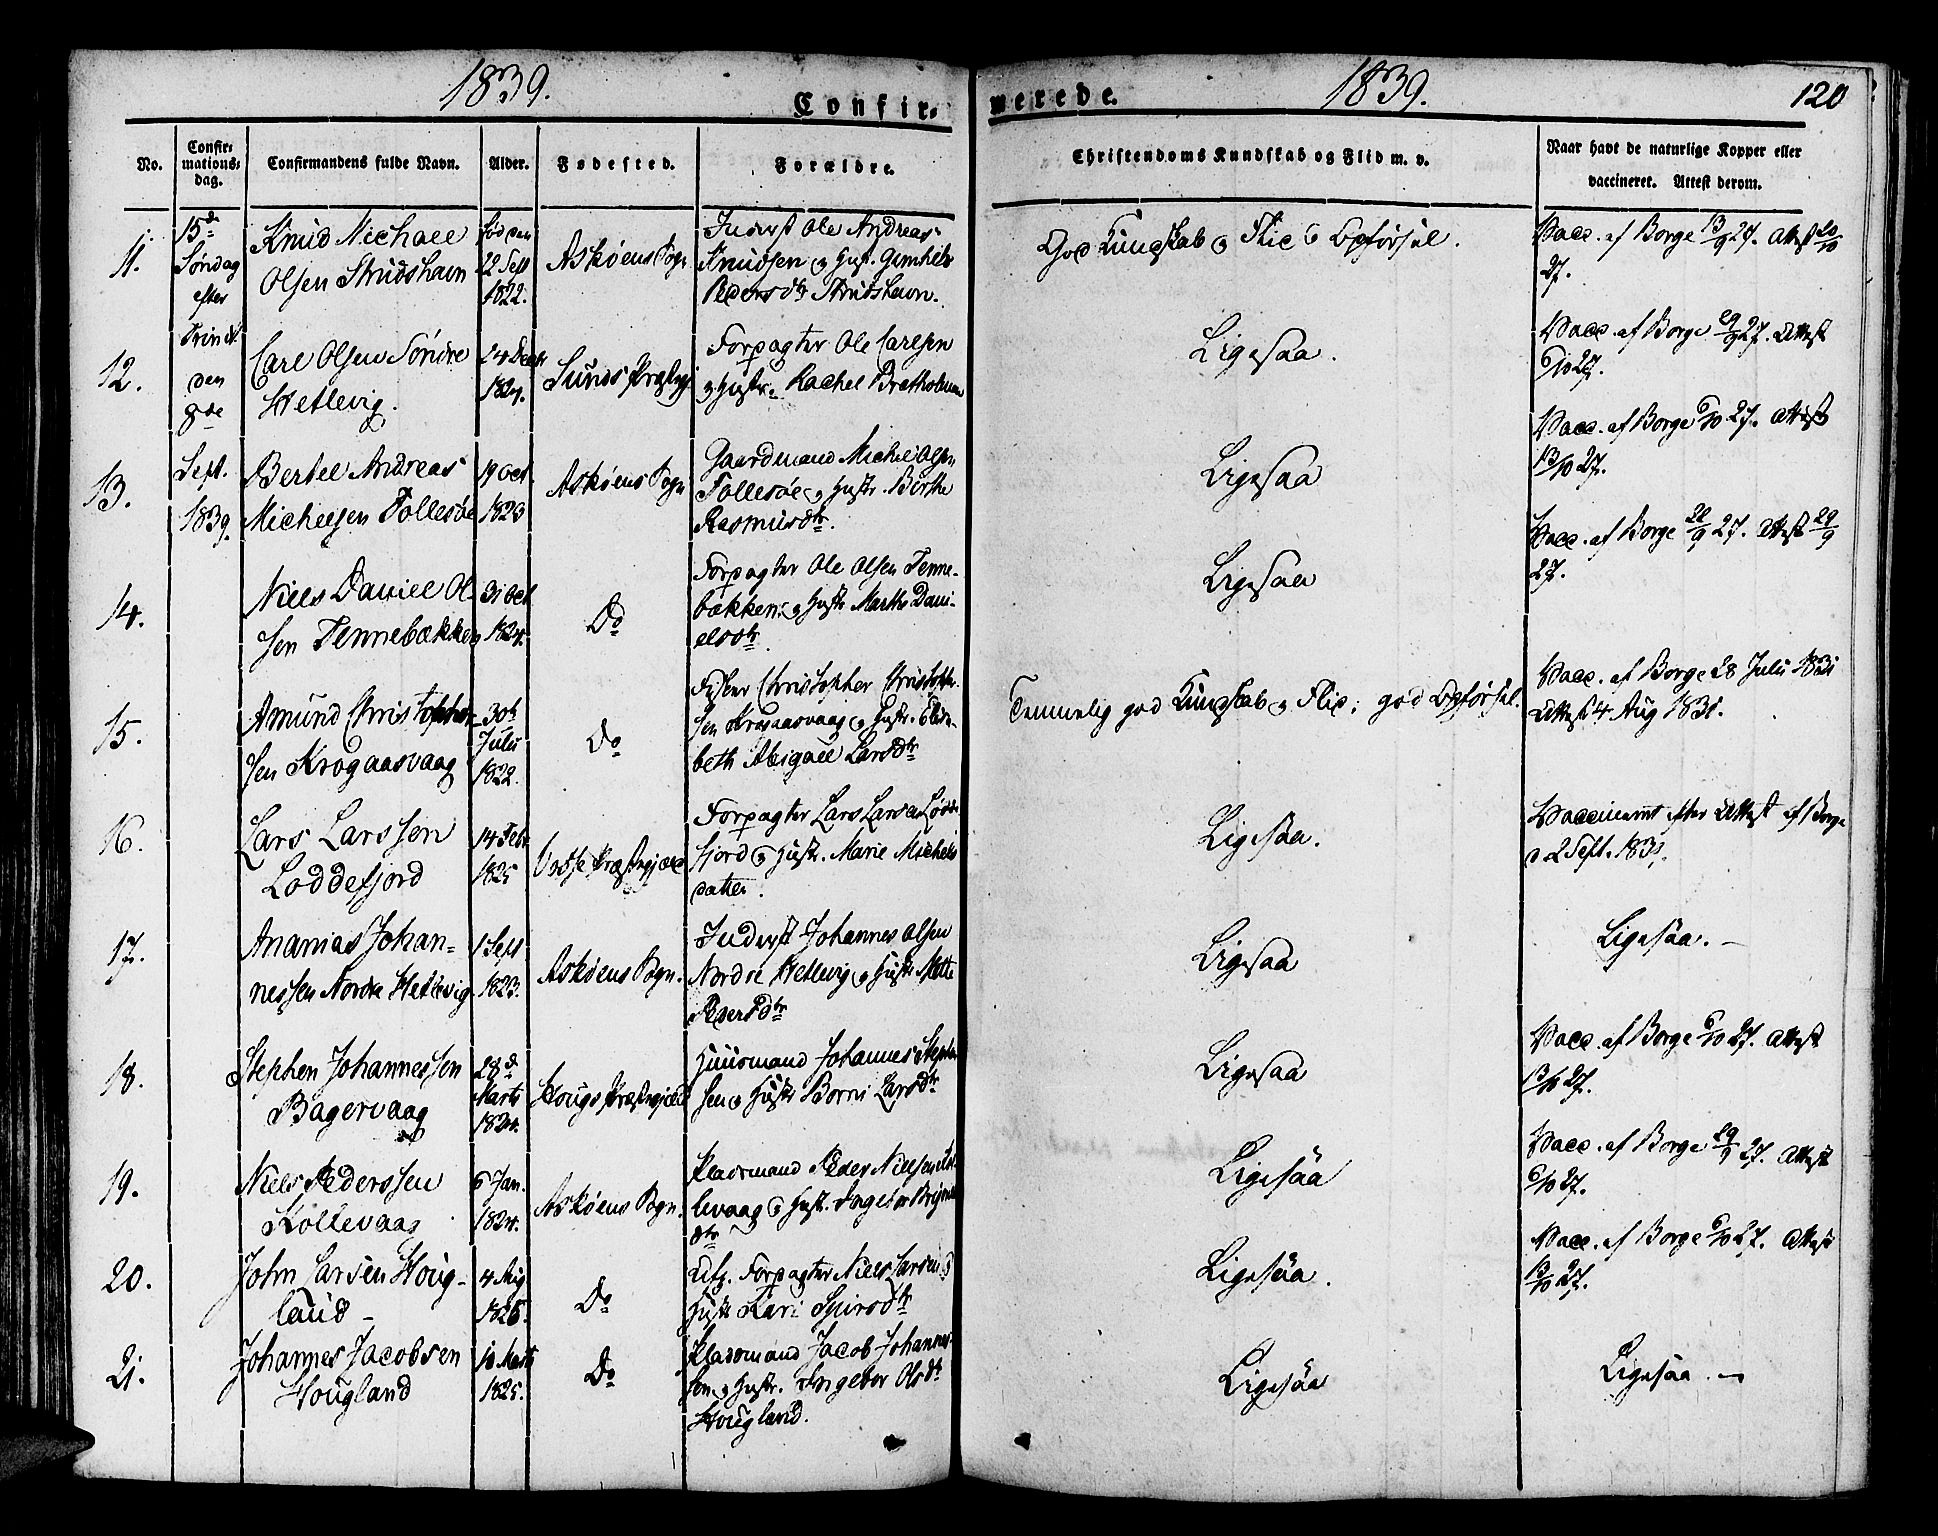 1839.
Confir-
merede.
1839.
120
No.
Confir-
mations-
dag.
Confirmandens fulde Navn.
Alder.
Fødested.
Forældre.
Christendoms Kundskab og Flid m. v.
Naar havt de naturlige Kopper eller
vaccineret. Attest derom.
15de
Søndag
efter
Trinit.
den
8de
Sept.
1839.
11.
Knud Michael
Olsen Strudshavn
Fød den
22 Sept
1822.
Askøens Sogn
Inderst Ole Andreas
Knudsen og Hust.
Pedersdtr Strudshavn.
God Kundskab og Flid og Opførsel.
Vacc. af Borge 13/9 27. Attest 20/10
27.
12.
Carl Olsen Søndre
Hetlevig.
24 Decbr
1824.
Sunds Præstegj
Forpagter Ole Carlsen
og Hustr. Rachel Bratholmen
Ligesaa.
Vacc. af Borge 29/9 27. Attest
6/10 27.
13.
Bertel Andreas
Michelsen Follesøe
19 Oct
1823
Askøens Sogn
Gaardmand Michel Olsen
Follesøe og Hustr. Birthe
Rasmusdtr.
Ligesaa
Vacc. af Borge 6/10 27. Attest
13/10 27.
14.
Niels Daniel Ol-
sen Tennebækken
31 Oct
1824.
Do
Forpagter Ole Olsen Tenne-
bækken og Hustr Marthe Dani-
elsdtr.
Ligesaa
Vacc. af Borge 22/9 27. Attest 29/9
27.
15.
Amund Christopher-
sen Krogaasvaag
30te
Julii
1822.
Do
Fisker Christopher Christopher-
sen Krogaasvaag og Hustr. Elisa-
beth Abigael Larsdtr
Temmelig god Kundskab og Flid; god Opførsel.
Vacc. af Borge 28 Julii 1831
Attest 4 Aug 1831.
16.
Lars Larssen
Loddefjord
14 Febr
1825
Præstegjæld
Forpagter Lars Larsen Lodde-
fjord og Hustr. Marie Michels
datter.
Ligesaa.
Vaccineret efter Attest af Borge
d 2 Sept. 1831.
17.
Ananias Johan-
nessen Nordre Hetlevig
1 Sept
1823.
Askøens Sogn.
Inderst Johannes Olsen
Nordre Hetlevig og Hustr Mette
Pedersdtr
Ligesaa
Ligesaa. —
18.
Stephen Johannessen
Bagervaag
28de
Marts
1824.
Hougs Præstegjæld
Huusmand Johannes Stephen
sen og Hustr Borni Larsdtr
Ligesaa
Vacc. af Borge 6/10 27. Attest
13/10 27.
19.
Niels Pederssen
Kollevaag
6 Jan.
1824.
Askøens Sogn.
Pladsmand Peder Nielsen Kol-
levaag og Hust. Ingebor
dtr
Ligesaa
Vacc. af Borge 29/9 27. Attest
6/10 27.
20.
John Larsen Houg-
land —
4 Aug
Do
Forpagter Niels Larsen og
Hustr Kari
Ligesaa.
Vacc. af Borge 6/10 27. Attest
13/10 27.
21.
Johannes Jacobsen
Hougland
10 Marts
1825.
Do
Pladsmand Jacob Johannes-
sen og Hustr. Ingebor Olsdtr
Hougland.
Ligesaa
Ligesaa. —